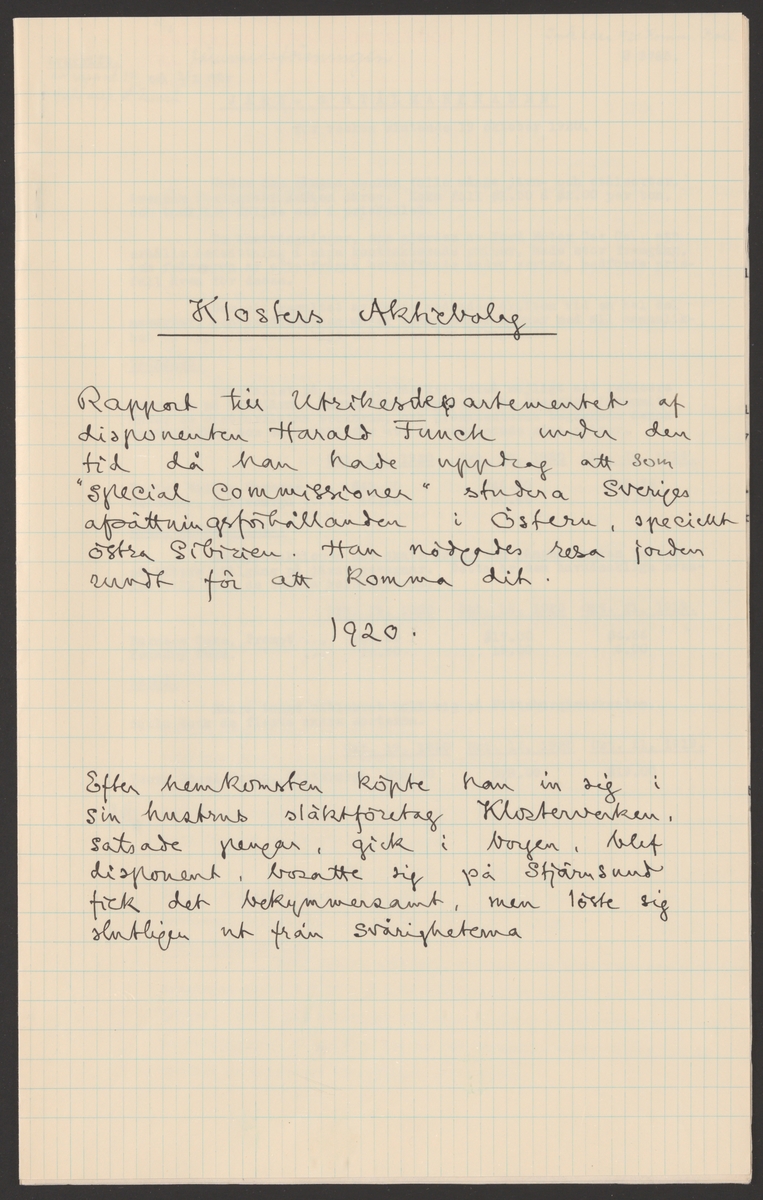 Klosters Aktiebolag
Rapport till Utrikesdepartementet af
disponenten Harald Funck under den
tid då han hade uppdrag att som
"Special Commissioner" studera Sveriges
afsättningsförhållanden i Östern, speciellt
östra Sibirien. Han nödgades resa jorden
rundt för att komma dit.
1920.
Efter hemkomsten köpte han in sig i
sin hustrus släktföretag Klosterverken,
satsade pengar, gick i borgen, blef
disponent, bosatte sig på Stjärnsund
fick det bekymmersamt, men löste sig
slutligen ut från svårigheterna